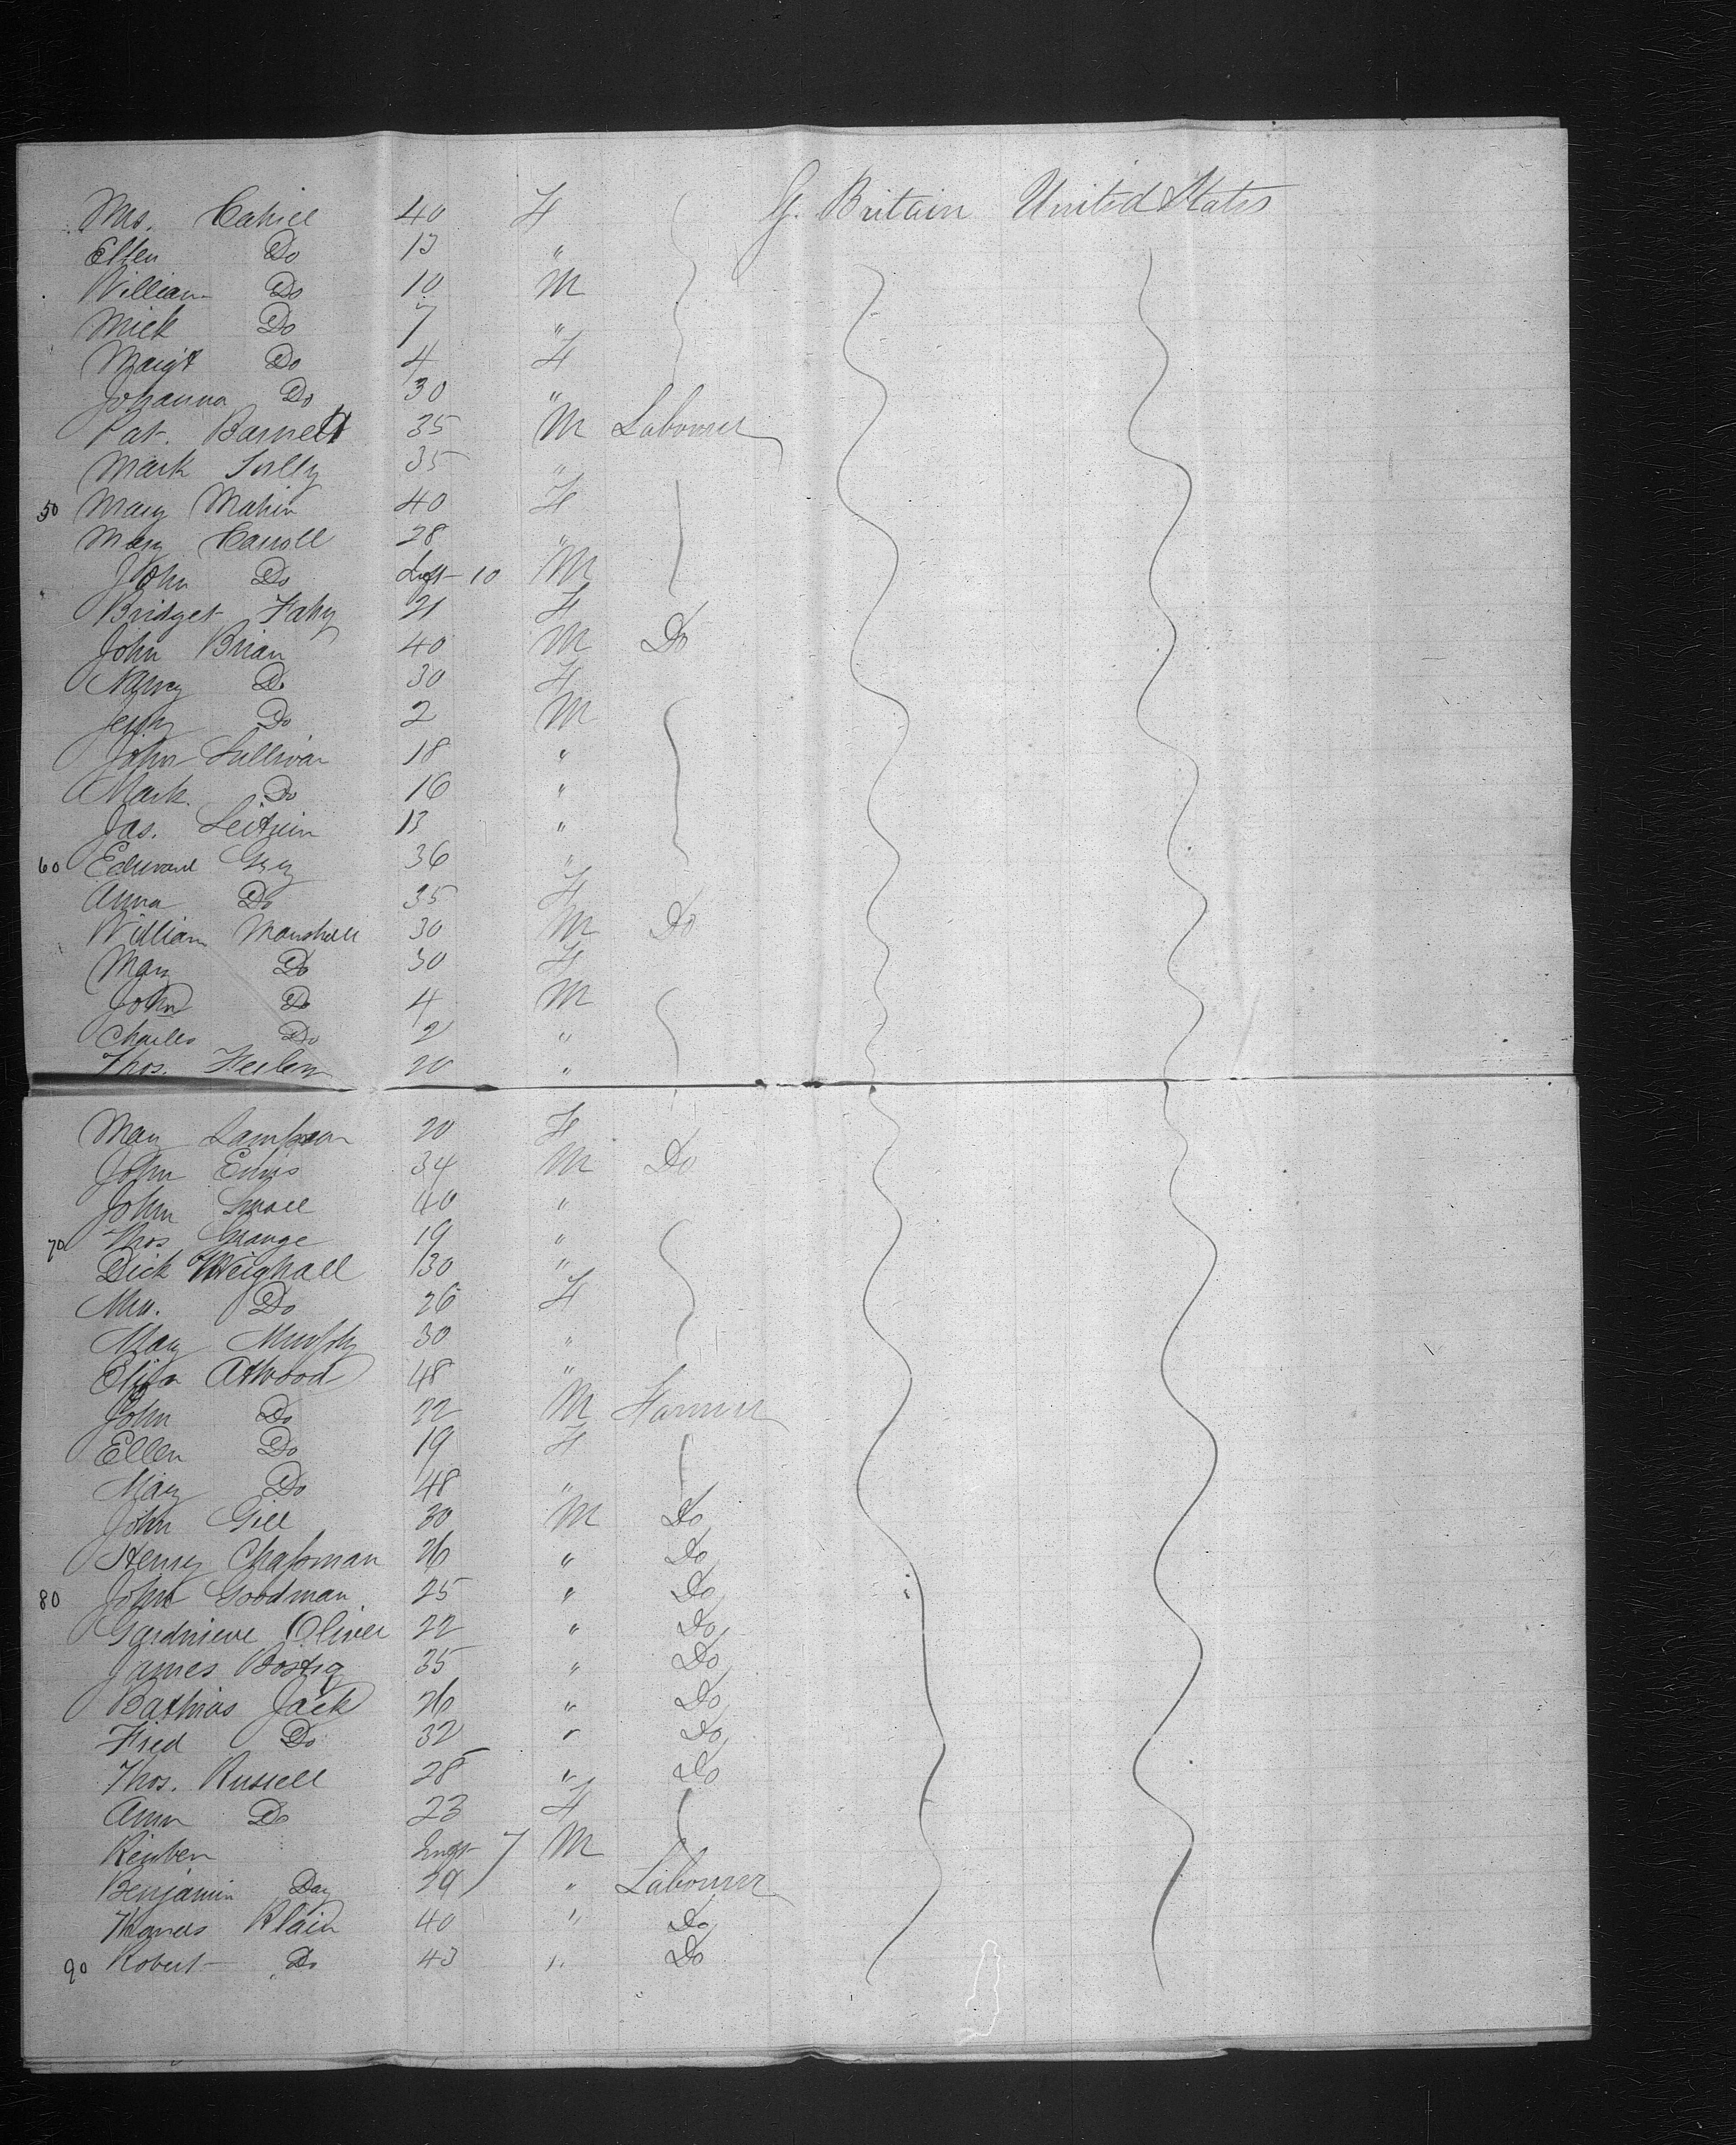 Mrs. Cahill 40 F G. Britain United States
Ellen Do 13 "
William Do 10 M
Mick Do 7 "
Margt Do 4 F
Johanna Do 30 "
Pat. Barnett 35 M Labourer
Mark Tully 35 "
50 Mary Mahin 40 F
Mary Carroll 28 "
John Do Inft 10 M
Bridget Fahy 21 F
John Brian 40 M Do
Nancy Do 30 F
Do 2 M
John Sullivan 18 "
Mark Do 16 "
Jas. 13 "
60 Edward Grey 36 "
Anna Do 35 F
William Marshall 30 M Do
Mary Do 30 F
John Do 4 M
Charles Do 2 "
Thos. 20 "
Mary 20 F
John 34 M Do
John Small 40 "
70 Thos Grange 19 "
Dick Weighall 30 "
Mrs. Do 26 F
Mary Murphy 30 "
Eliza Atwood 48 "
John Do 22 M Farmer
Ellen Do 19 F
Mary Do 48 "
John Gill 30 M Do
Henry Chapman 26 " Do
80 John Goodman 25 " Do
Oliver 22 " Do
James 35 " Do
Jack 26 " Do
Fred Do 32 " Do
Thos. Russell 28 " Do
Ann Do 23 F
Reuben Inft 7 M
Benjamin Day 29 " Labourer
Thomas Blain 40 " Do
90 Robert Do 43 " Do